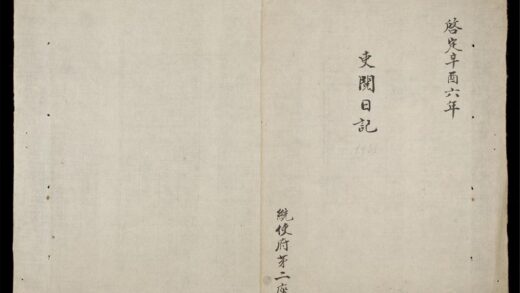 啓定辛酉六年
吏閱日記
統使府苐二座